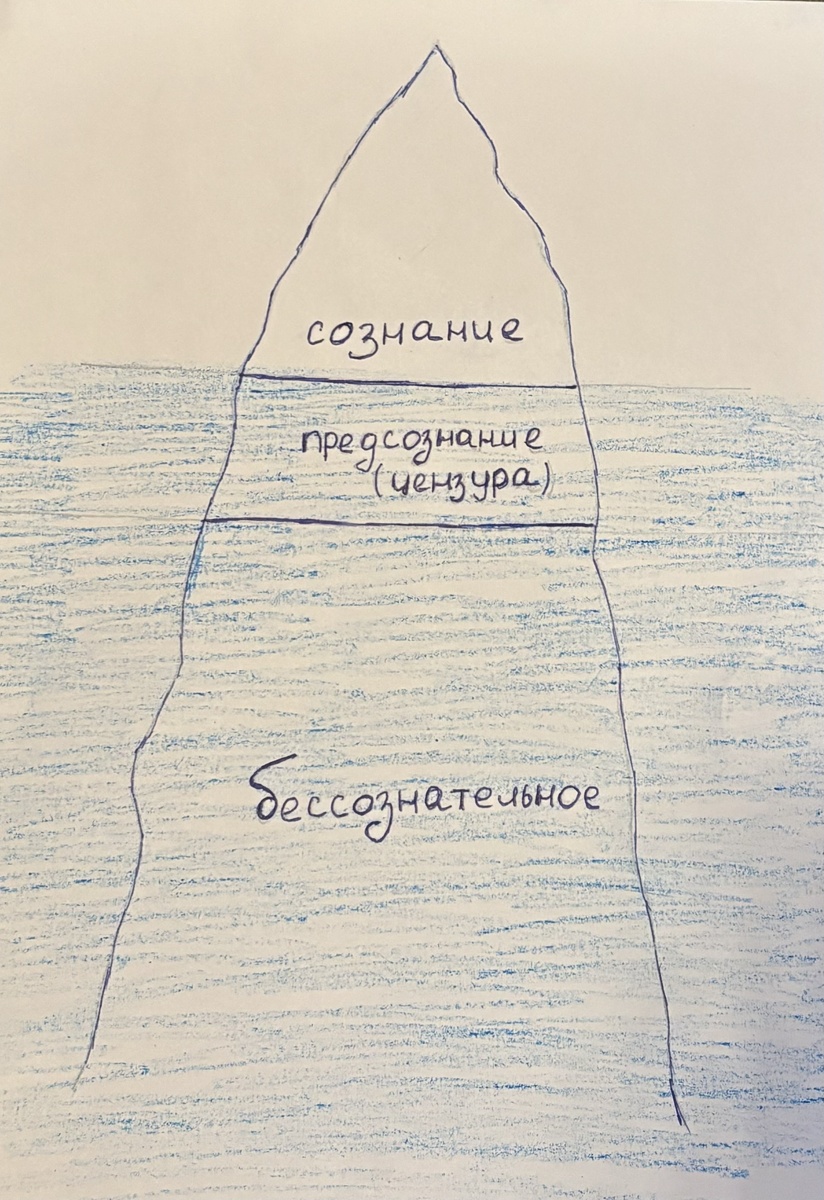 сознание
предсознание
(цензура)
бессознательное